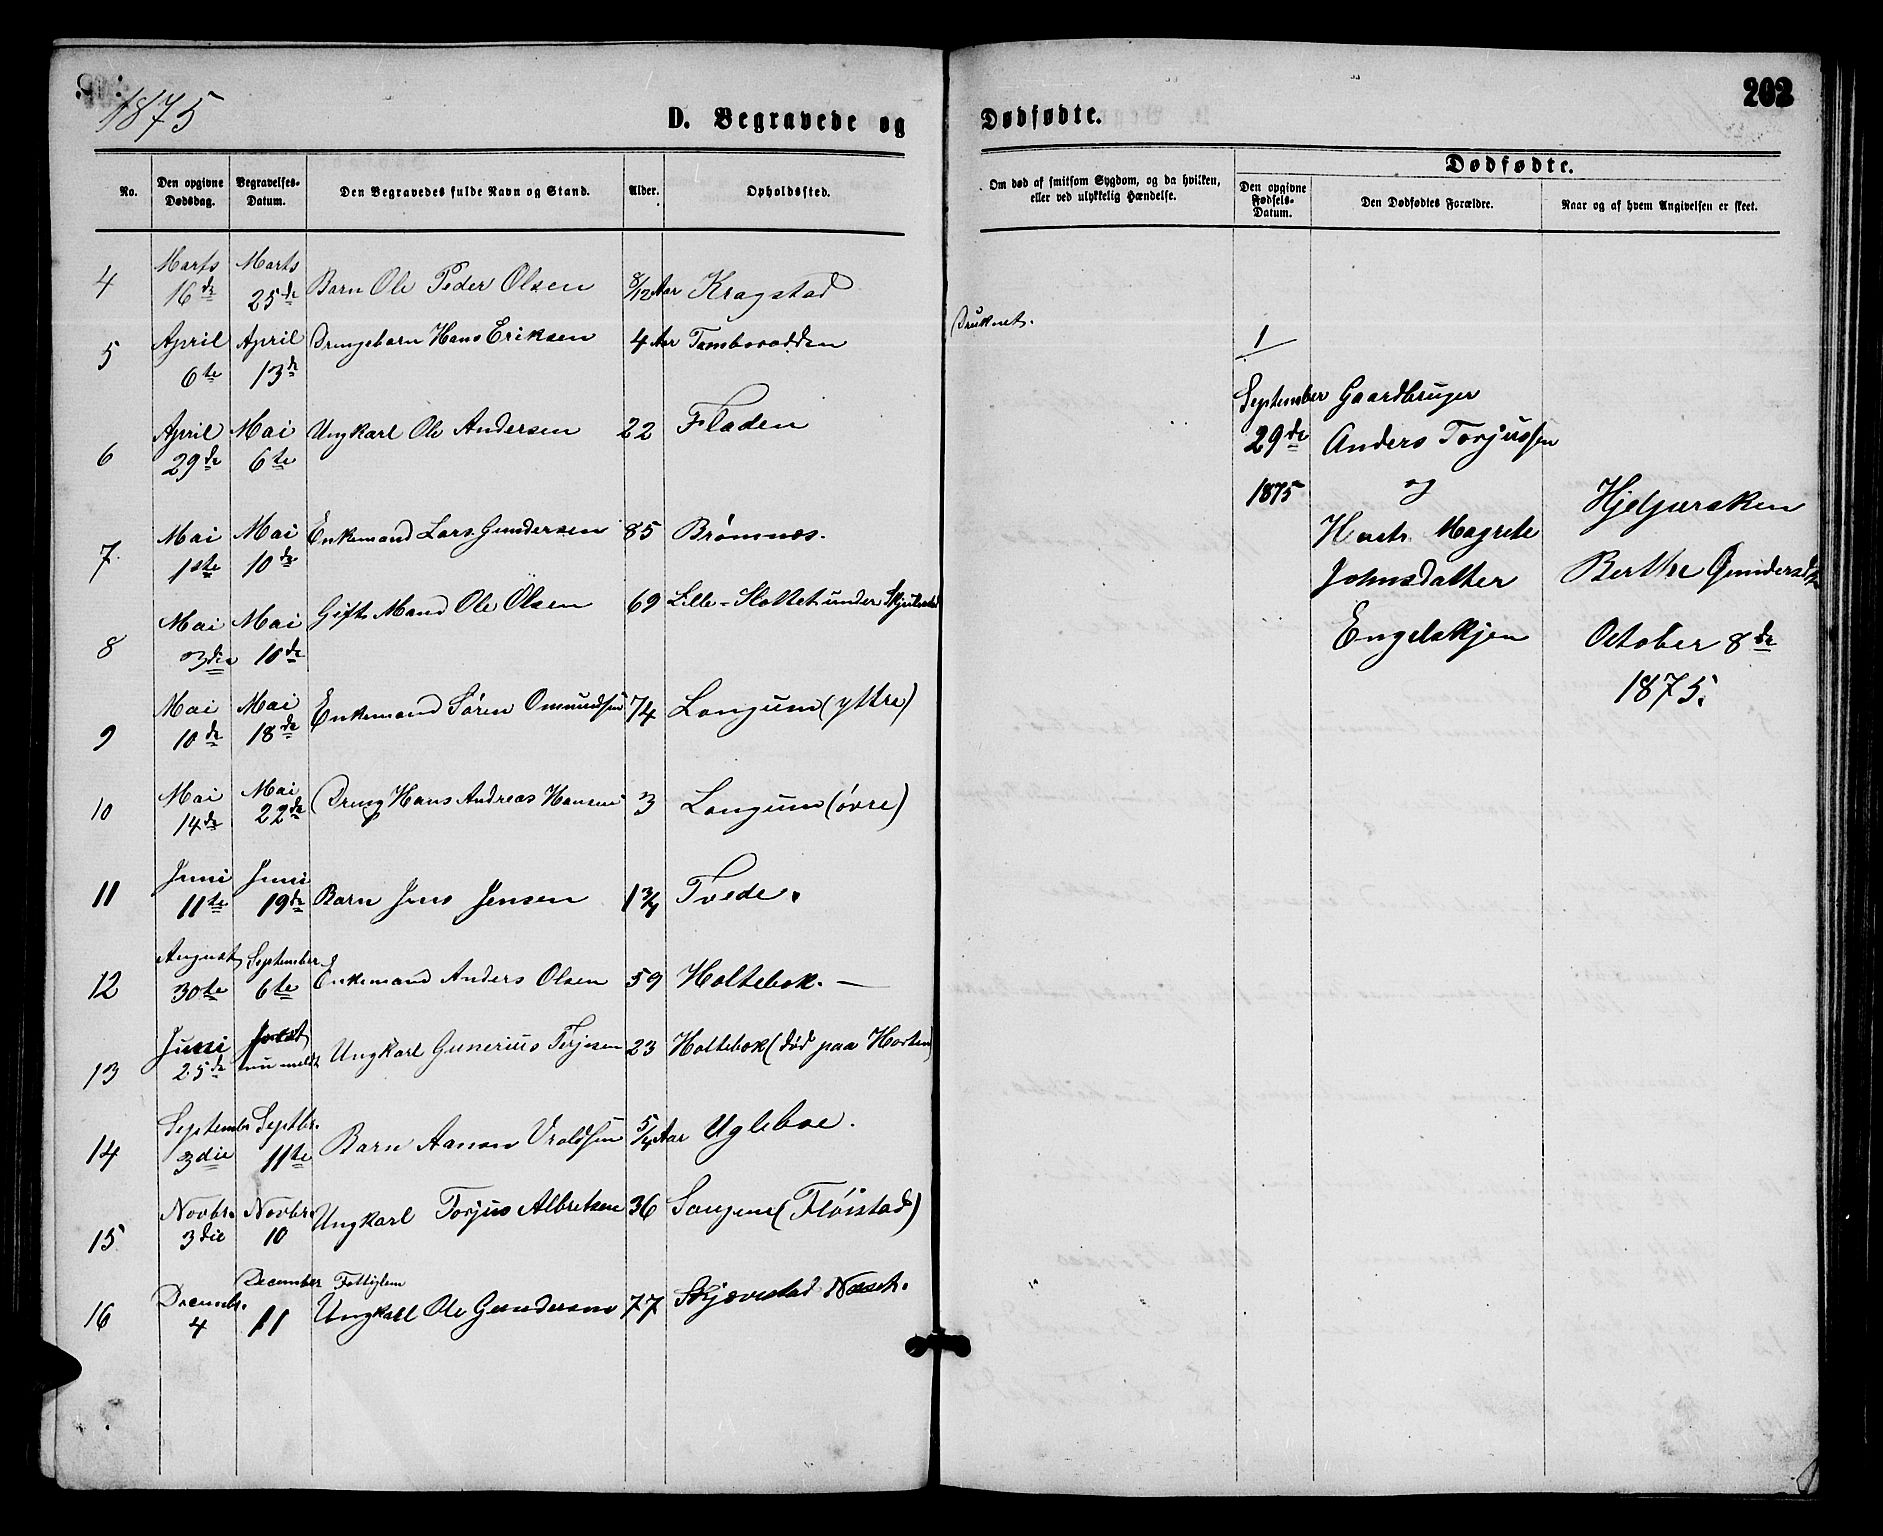 1875
202
D. Begravede og Dødfødte.
No.
Den opgivne Dødsdag.
Begravelses-Datum.
Den Begravedes fulde Navn og Stand.
Alder.
Opholdssted.
Om død af smitsom Sygdom, og da hvilken, eller ved ulykkelig Hændelse.
Dødfødte.
Den opgivne Fødsels-Datum.
Den Dødfødtes Forældre.
Naar og af hvem Angivelsen er skeet.
4 Marts 16de Marts 25de Barn Ole Peder Olsen 8/12 Aar Kragstad
5 April 6te April 13de Drengebarn Hans Eriksen 4 Aar Tambovodden Druknet.
6 April 29de Mai 6te Ungkarl Ole Andersen 22 Fladen
7. Mai 1ste Mai 10de Enkemand Lars Gundersen 85 Brømnæs.
8 Mai 3die Mai 10de Gift Mand Ole Olsen 69 Lille-Slottet under
9 Mai 10de Mai 18de Enkemand Søren Omundsen 74 Longum (yttre)
10 Mai 14de Mai 22de Dreng Hans Andreas Hansen 3 Longum (øvre)
11 Juni 11te Juni 19de Barn Jens Jensen 1 3/4 Tvede.
12 August 30te September 6te Enkemand Anders Olsen 59 Holtebok. —
13 Juni 25de nu meldt Ungkarl Gunerius Terjesen 23 Holtebok (død paa Horten)
14 Septembr 3die Septbr. 11te Barn Aanon Vroldsen 5/4 Aar Ugleboe.
15. Novbr. 3die Novbr. 10 Ungkarl Torjus Albretsen 36 Songene (Fløistad)
16 Decembr. 4 December 11 Fattiglem Ungkarl Ole Gundersen 77 Skjævestad Næsek.
1
September
29de
1875
Gaardbruger
Anders Torjussen
og
Hustr. Magrete
Johnsdatter
Engelskjøn
Berthe Gundersdtr
October 8de
1875.